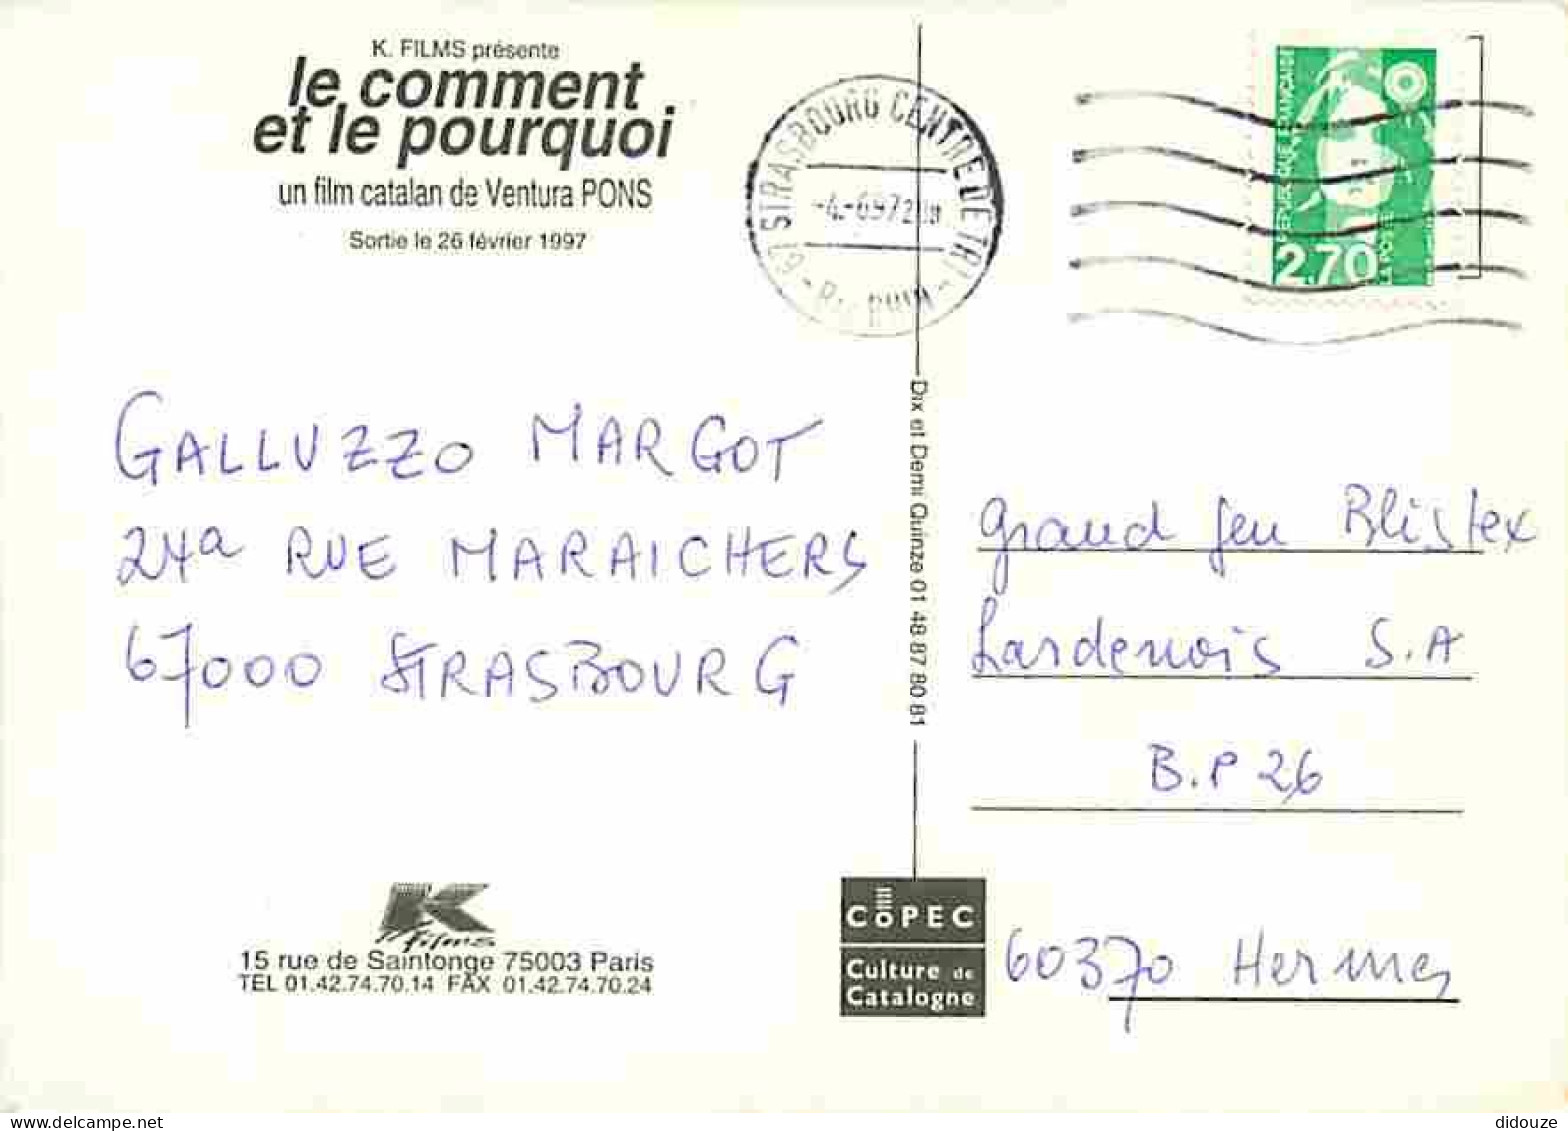 K. FILMS présente
le comment
et le pourquoi
un film catalan de Ventura PONS
Sortie le 26 février 1997
67 STRASBOURG CENTRE DE TRI
-4.-697
REPUBLIQUE FRANCAISE
2,70
LA POSTE
GALLUZZO MARGOT
24a RUE MARAICHERS
67000 STRASBOURG
Dix et Demi Quinze 01 48 87 80 81
Grand jeu Blistex
Lardenois S.A
B.P 26
60370 Hermes
K films
15 rue de Saintonge 75003 Paris
TEL 01.42.74.70.14 FAX 01.42.74.70.24
COPEC
Culture de
Catalogne
delcampe.net
didouze